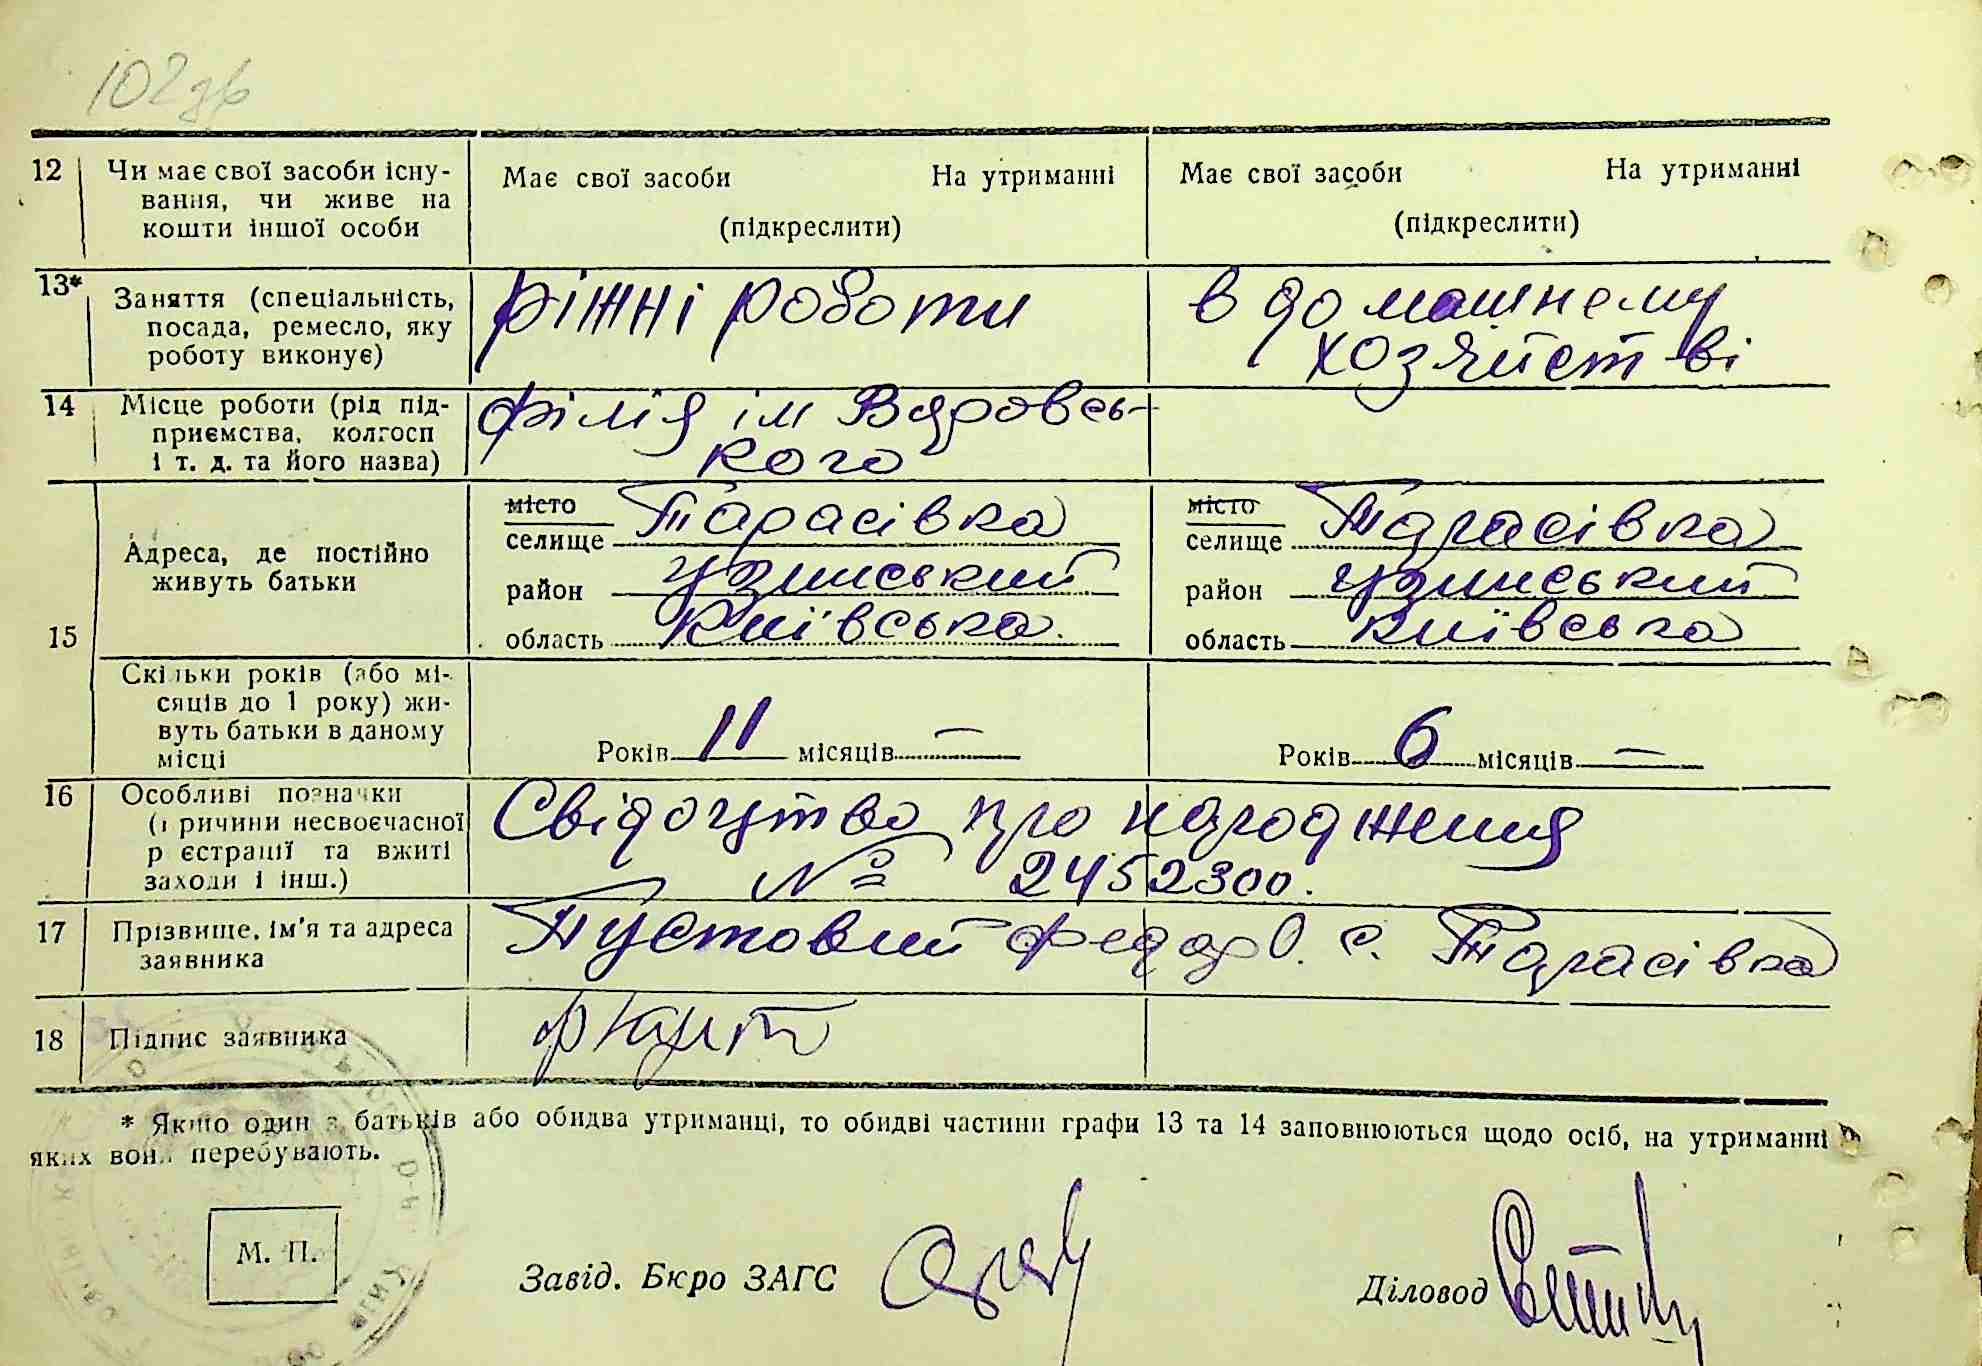 102зв
12 Чи має свої засоби існу- Має свої засоби На утриманні Має свої засоби На утриманні
вання, чи живе на
кошти іншої особи (підкреслити) (підкреслити)
13* Заняття (спеціальність, ріжні роботи в домашнему
посада, ремесло, яку хозяйстві
роботу виконує)
14 Місце роботи (рід під- філія ім
приємства, колгосп кого
і т. д. та його назва)
15 Адреса, де постійно живуть батьки
місто
селище Тарасівка
район Узинський
область Київська
місто
селище Тарасівка
район Узинський
область Київська
Скільки років (або мі-
сяців до 1 року) жи-
вуть батьки в даному
місці
Років 11 місяців — Років 6 місяців —
16 Особливі позначки Свідоцтво про народження
(причини несвоєчасної
реєстрації та вжиті № 2452300.
заходи і інш.)
17 Прізвище, ім'я та адреса Пустовий Федор О. с. Тарасівка
заявника
18 Підпис заявника
* Якщо один з батьків або обидва утриманці, то обидві частини графи 13 та 14 заповнюються щодо осіб, на утриманні
яких вони перебувають.
М. П.
Завід. Бюро ЗАГС Діловод